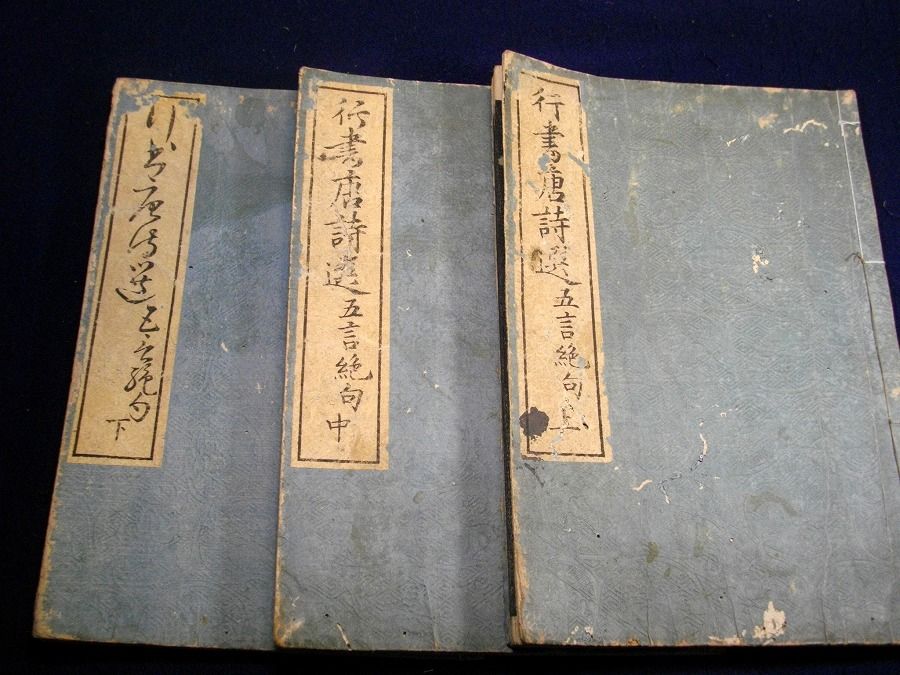 行書唐詩選五言絶句上
行書唐詩選五言絶句中
行書唐詩選五言絶句下